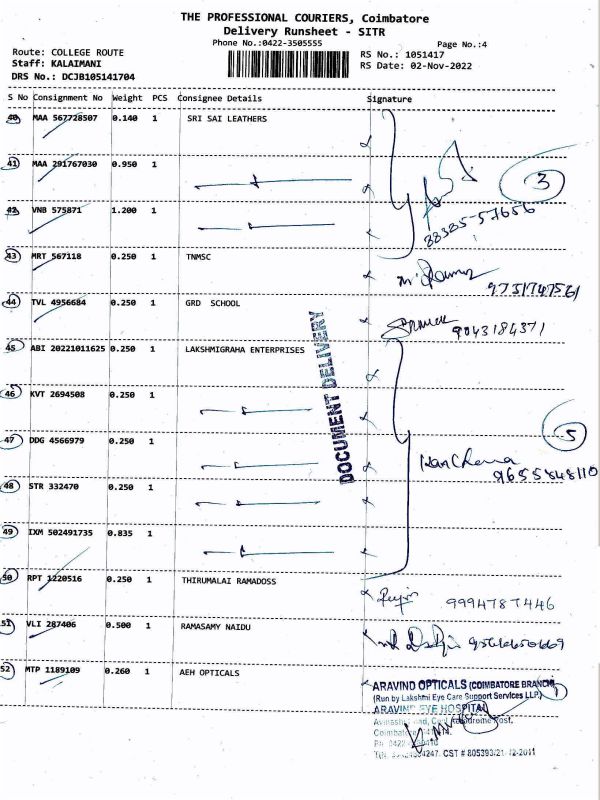 THE PROFESSIONAL COURIERS, Coimbatore
Delivery Runsheet - SITR
Phone No.:0422-3505555
Page No.:4
Route: COLLEGE ROUTE
RS No.: 1051417
Staff: KALAIMANI
RS Date: 02-Nov-2022
DRS No.: DCJB105141704
S No Consignment No Weight PCS Consignee Details Signature
40 MAA 567728507 0.140 1 SRI SAI LEATHERS
41 MAA 291767030 0.950 1
3
42 VNB 575871 1.200 1
88385-57656
43 MRT 567118 0.250 1 TNMSC
9751747561
44 TVL 4956684 0.250 1 GRD SCHOOL
9043184371
45 ABI 20221011625 0.250 1 LAKSHMIGRAHA ENTERPRISES
DOCUMENT DELIVERY
46 KVT 2694508 0.250 1
5
47 DDG 4566979 0.250 1
48 STR 332470 0.250 1
49 IXM 502491735 0.835 1
50 RPT 1220516 0.250 1 THIRUMALAI RAMADOSS
9994787446
51 VLI 287406 0.500 1 RAMASAMY NAIDU
52 MTP 1189109 0.260 1 AEH OPTICALS
ARAVIND OPTICALS (COIMBATORE BRANCH)
(Run by Lakshmi Eye Care Support Services LLP)
ARAVIND EYE HOSPITAL